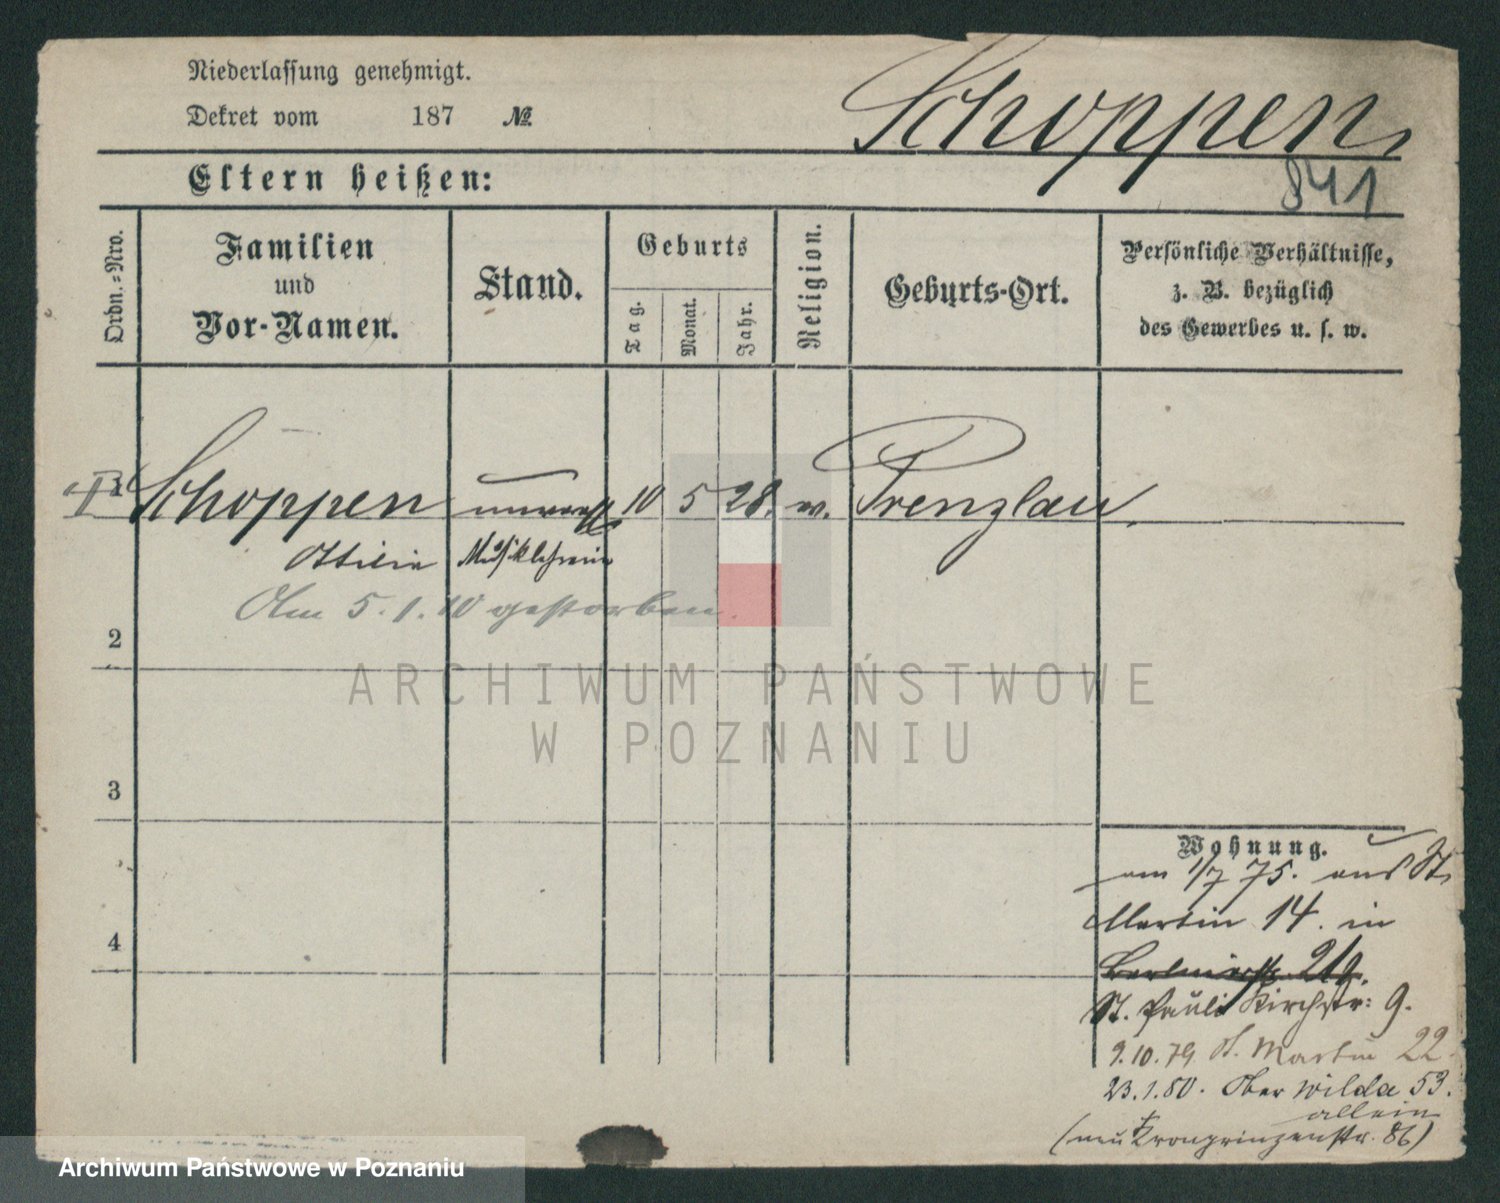 Niederlassung genehmigt.
Dekret vom 187 №
Schoppen
841
Eltern heißen:
Ordn.-Nro.
Familien
und
Vor-Namen.
Stand.
Geburts
Tag.
Monat.
Jahr.
Religion.
Geburts-Ort.
Persönliche Verhältnisse,
z. B. bezüglich
des Gewerbes u. s. w.
1 Schoppen 10 5 28. ev. Prenzlau
Ottilie Musiklehrerin
Am 5.1.10 gestorben.
2
ARCHIWUM PAŃSTWOWE
W POZNANIU
3
Wohnung.
am 1/7 75. aus St.
Martin 14. in
4
St. Pauli Kirchstr: 9.
9.10.79 St. Martin 22.
23.1.80. Ober Wilda 53.
allein
(neu Kronprinzenstr. 86)
Archiwum Państwowe w Poznaniu